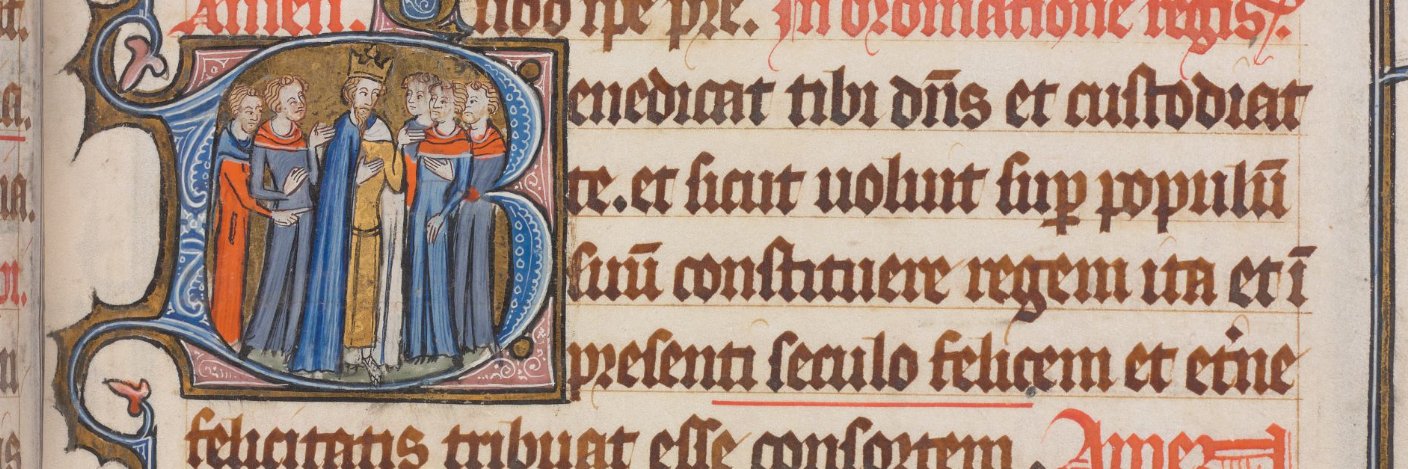 Amen. Quod ipe pre. In ordinatione regis.
Benedicat tibi dn̄s et custodiat
te. et sicut uoluit sup̲ populū
suū constituere regem ita et ī
presenti seculo felicem et et̾ne
felicitatis tribuat esse consortem. Amen